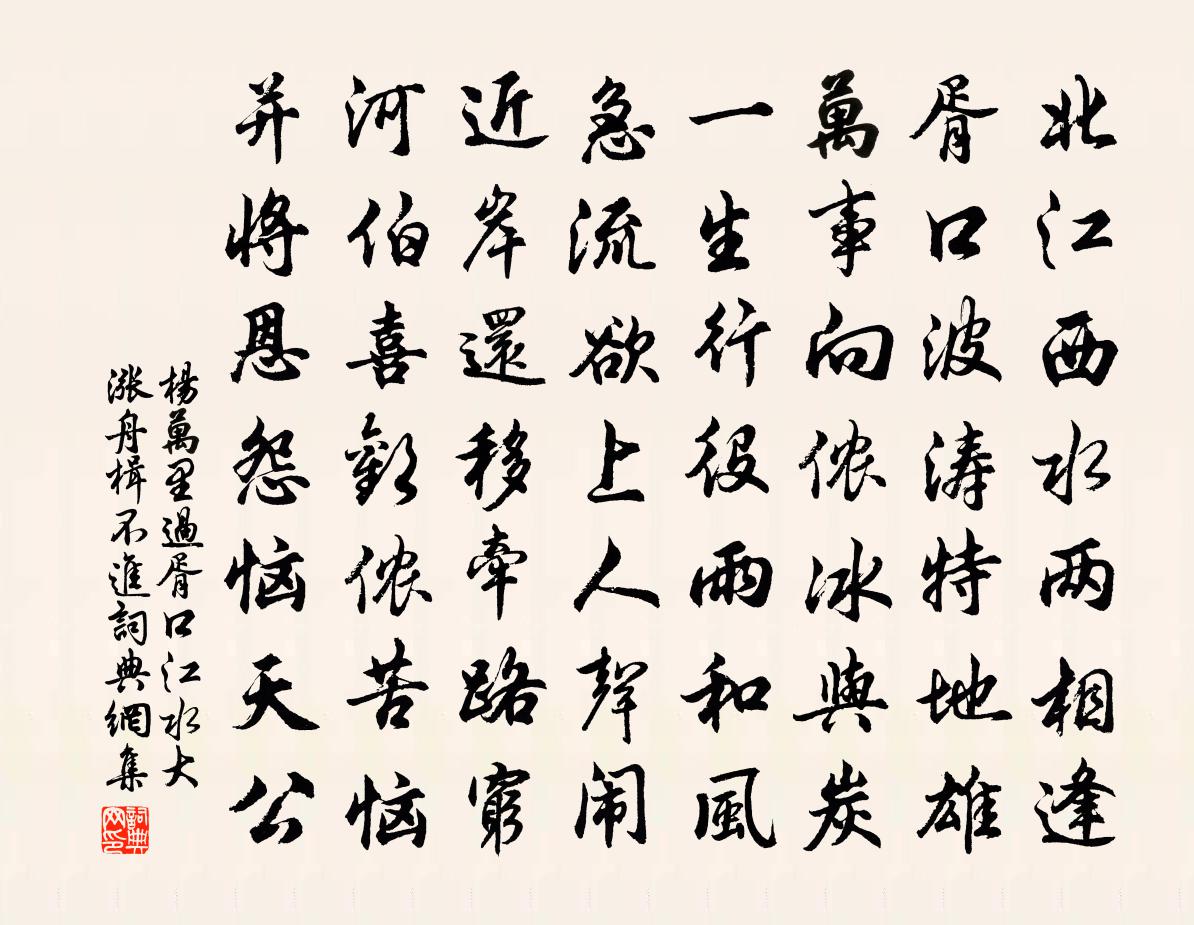 北江西水两相逢
胥口波涛特地雄
萬事向侬冰與炭
一生行役雨和風
急流欲上人聲闹
近岸還移牽路窮
河伯喜歡侬苦恼
并將恩怨恼天公
楊萬里過胥口江水大
漲舟楫不進詞典網集
詞典
网印